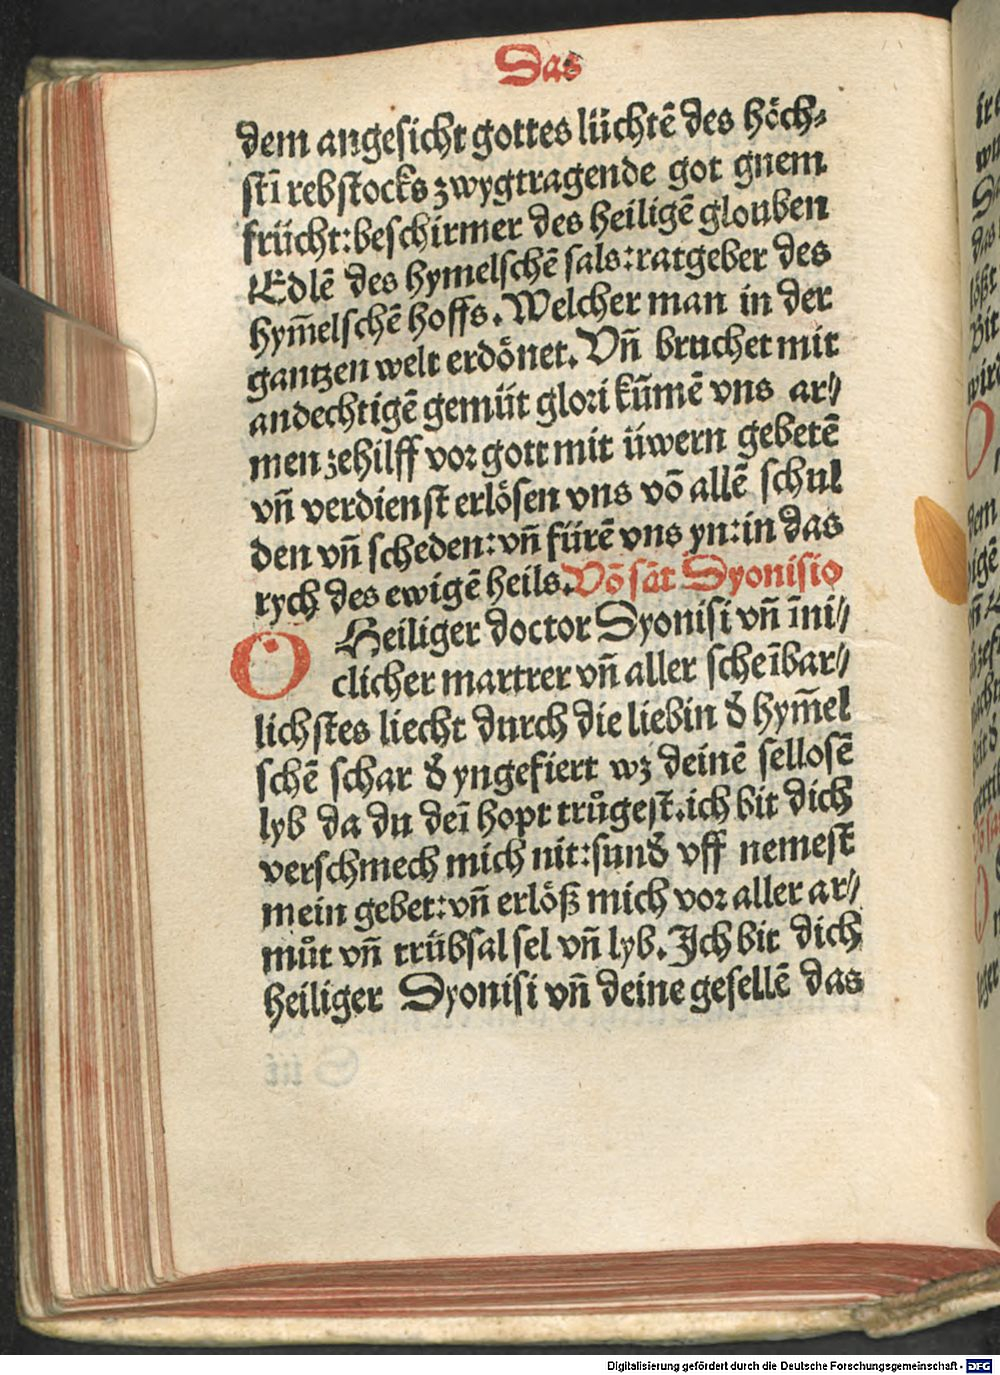 Das
dem angesicht gottes lüchtē des höch⸗
stī rebstocks zwygtragende got gnem
frücht:beschirmer des heiligē glouben
Edlē des hymelschē sals:ratgeber des
hym̄elschē hoffs. Welcher man in der
gantzen welt erdönet. Vn̄ bruchet mit
andechtigē gemüt glori kūmē vns ar⸗
men zehilff vor gott mit üwern gebetē
vn̄ verdienst erlösen vns vō allē schul
den vn̄ scheden:vn̄ fürē vns yn:in das
rych des ewigē heils. Vō sāt Dyonisio
O Heiliger doctor Dyonisi vn̄ īni⸗
clicher martrer vn̄ aller scheībar⸗
lichstes liecht durch die liebin đ hym̄el
schē schar đ yngefiert wz deinē sellosē
lyb da du deī hopt trůgest.ich bit dich
verschmech mich nit:sunđ vff nemest
mein gebet:vn̄ erlöß mich vor aller ar⸗
můt vn̄ trübsal sel vn̄ lyb. Ich bit dich
heiliger Dyonisi vn̄ deine gesellē das
Digitalisierung gefördert durch die Deutsche Forschungsgemeinschaft - DFG